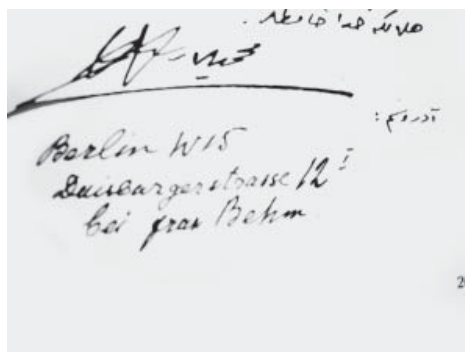 خدا حافظ
آدرس:
Berlin W15
Duisburgerstrasse 12 I
bei frau Behm
2